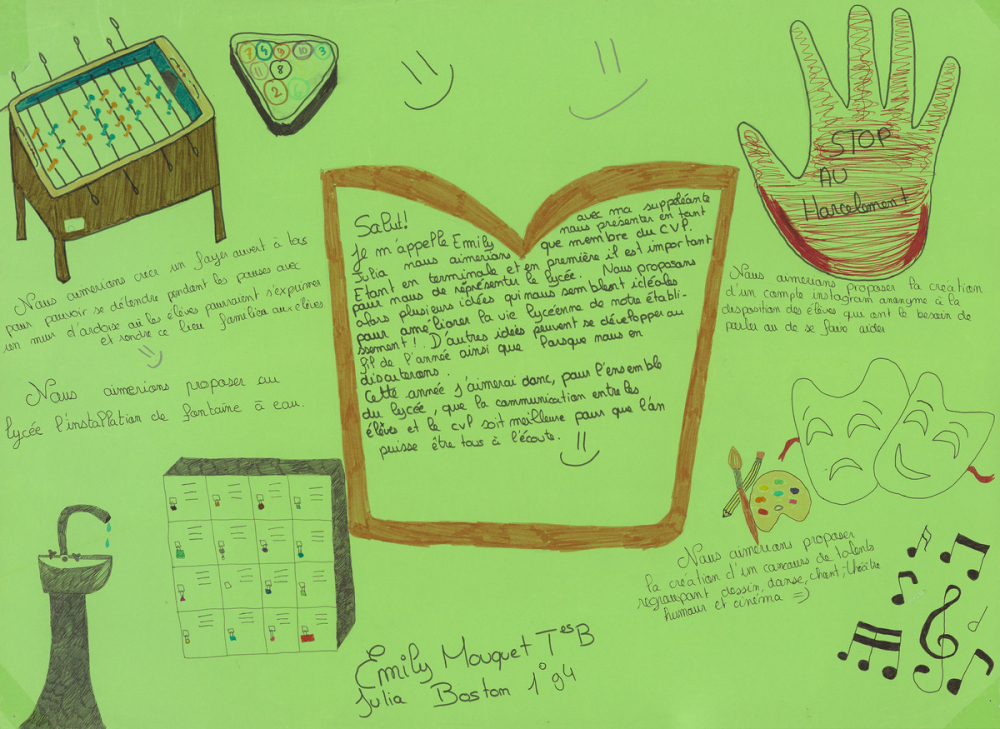 7 4 9 10 3
11 8
2 6
STOP
AU
Harcelement
Salut!
Je m'appelle Emily avec ma suppléante
Julia nous aimerions nous présenter en tant
que membre du CVP.
Etant en terminale et en première il est important
pour nous de réprésenter le lycée. Nous proposons
alors plusieurs idées qui nous semblent idéales
pour améliorer la vie lycéenne de notre établi-
ssement! D'autres idées peuvent se développer au
fil de l'année ainsi que lorsque nous en
discuterons.
Cette année j'aimerai donc, pour l'ensemble
du lycée, que la communication entre les
élèves et le cvl soit meilleure pour que l'on
puisse être tous à l'écoute.
Nous aimerions creer un foyer ouvert à tous
pour pouvoir se détendre pendant les pauses avec
un mur d'ardoise où les élèves pourraient s'exprimer
et rendre ce lieu familier aux élèves
Nous aimerions proposer au
lycée l'installation de fontaine à eau.
Nous aimerions proposer la création
d'un compte instagram anonyme à la
disposition des élèves qui ont le besoin de
parler ou de se faire aider
Nous aimerions proposer
la création d'un concours de talents
regroupant dessin, danse, chant, théâtre
humour et cinéma =)
Emily Mouquet Tes B
Julia Boston 1° g4